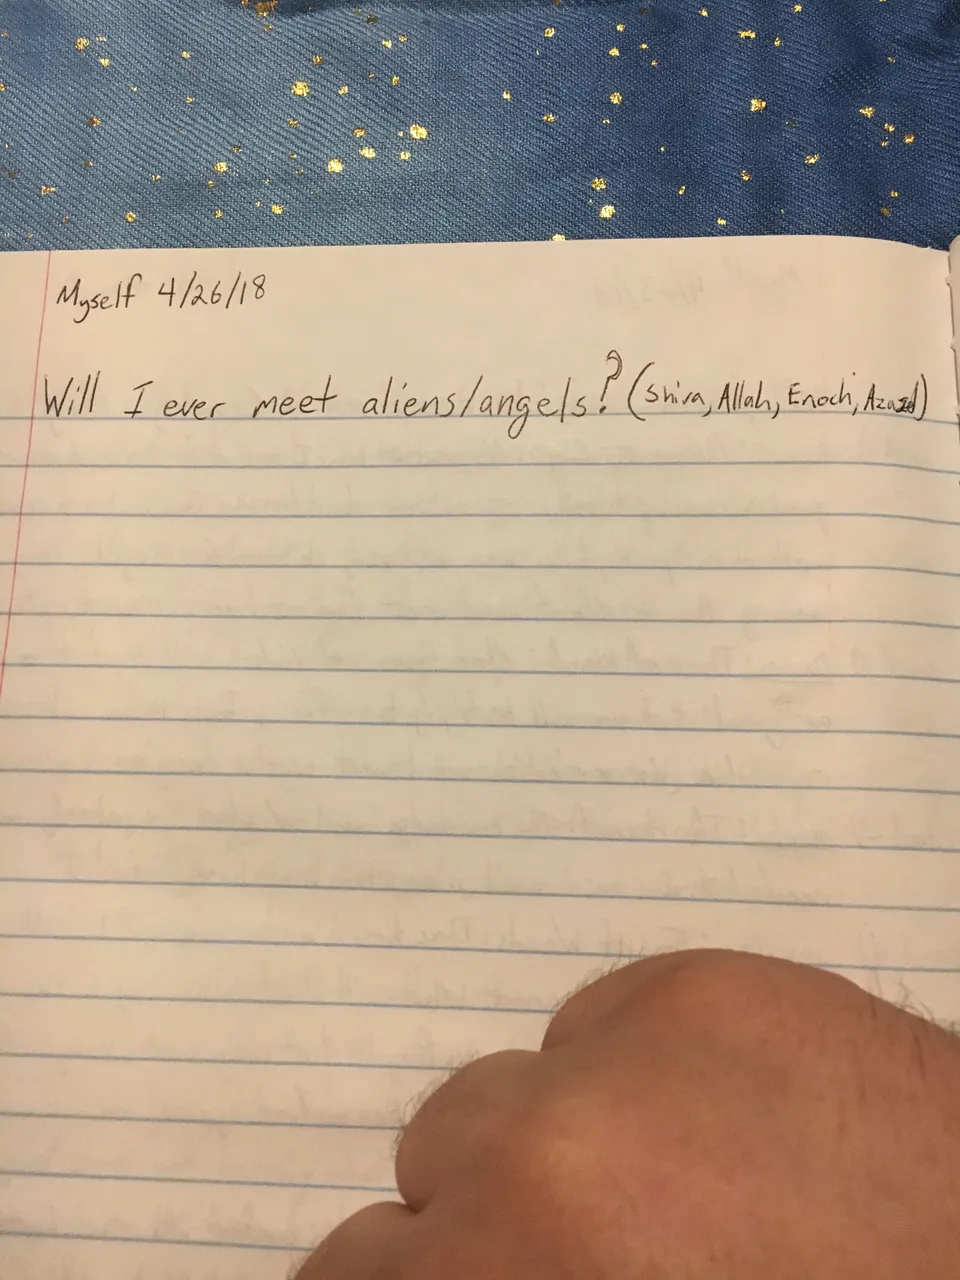 Myself 4/26/18
Will I ever meet aliens/angels? (Shiva, Allah, Enoch, Azazel)